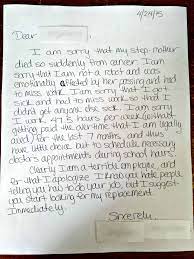 4/24/15
Dear
I am sorry that my step mother
died so suddenly from cancer. I am
sorry that I am not a robot and was
emotionally affected by her passing and had
to miss work. I am sorry that I got
sick and had to miss work so that I
didn't get anyone else sick. I am sorry
I work 47.5 hours per week (without
getting paid the overtime that I am legally
owed) for the last 7 months, and thus
have little choice but to schedule necessary
doctors appointments during school hours.
Clearly I am a terrible employee, and
for that I apologize. I know you hate people
telling you how to do your job, but I suggest
you start looking for my replacement.
Immediately.
Sincerely,